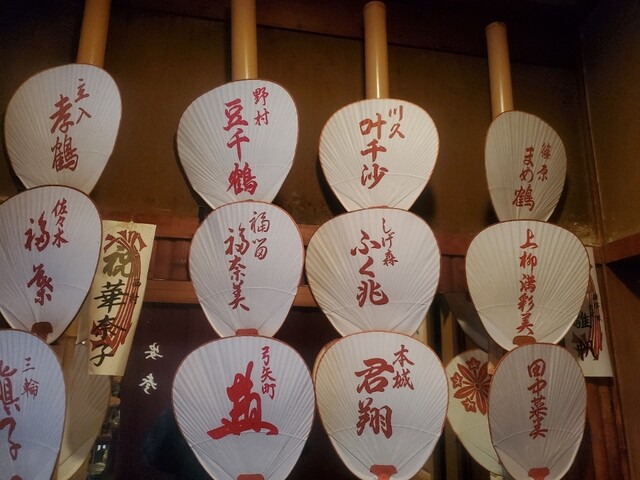 立入
孝鶴
野村
豆千鶴
川久
叶千沙
篠原
まめ鶴
佐々木
福葉
祝
華奈子
福留
福奈美
しげ森
ふく兆
上柳
満彩美
三輪
眞子
弓矢町
本城
君翔
田中
菜美